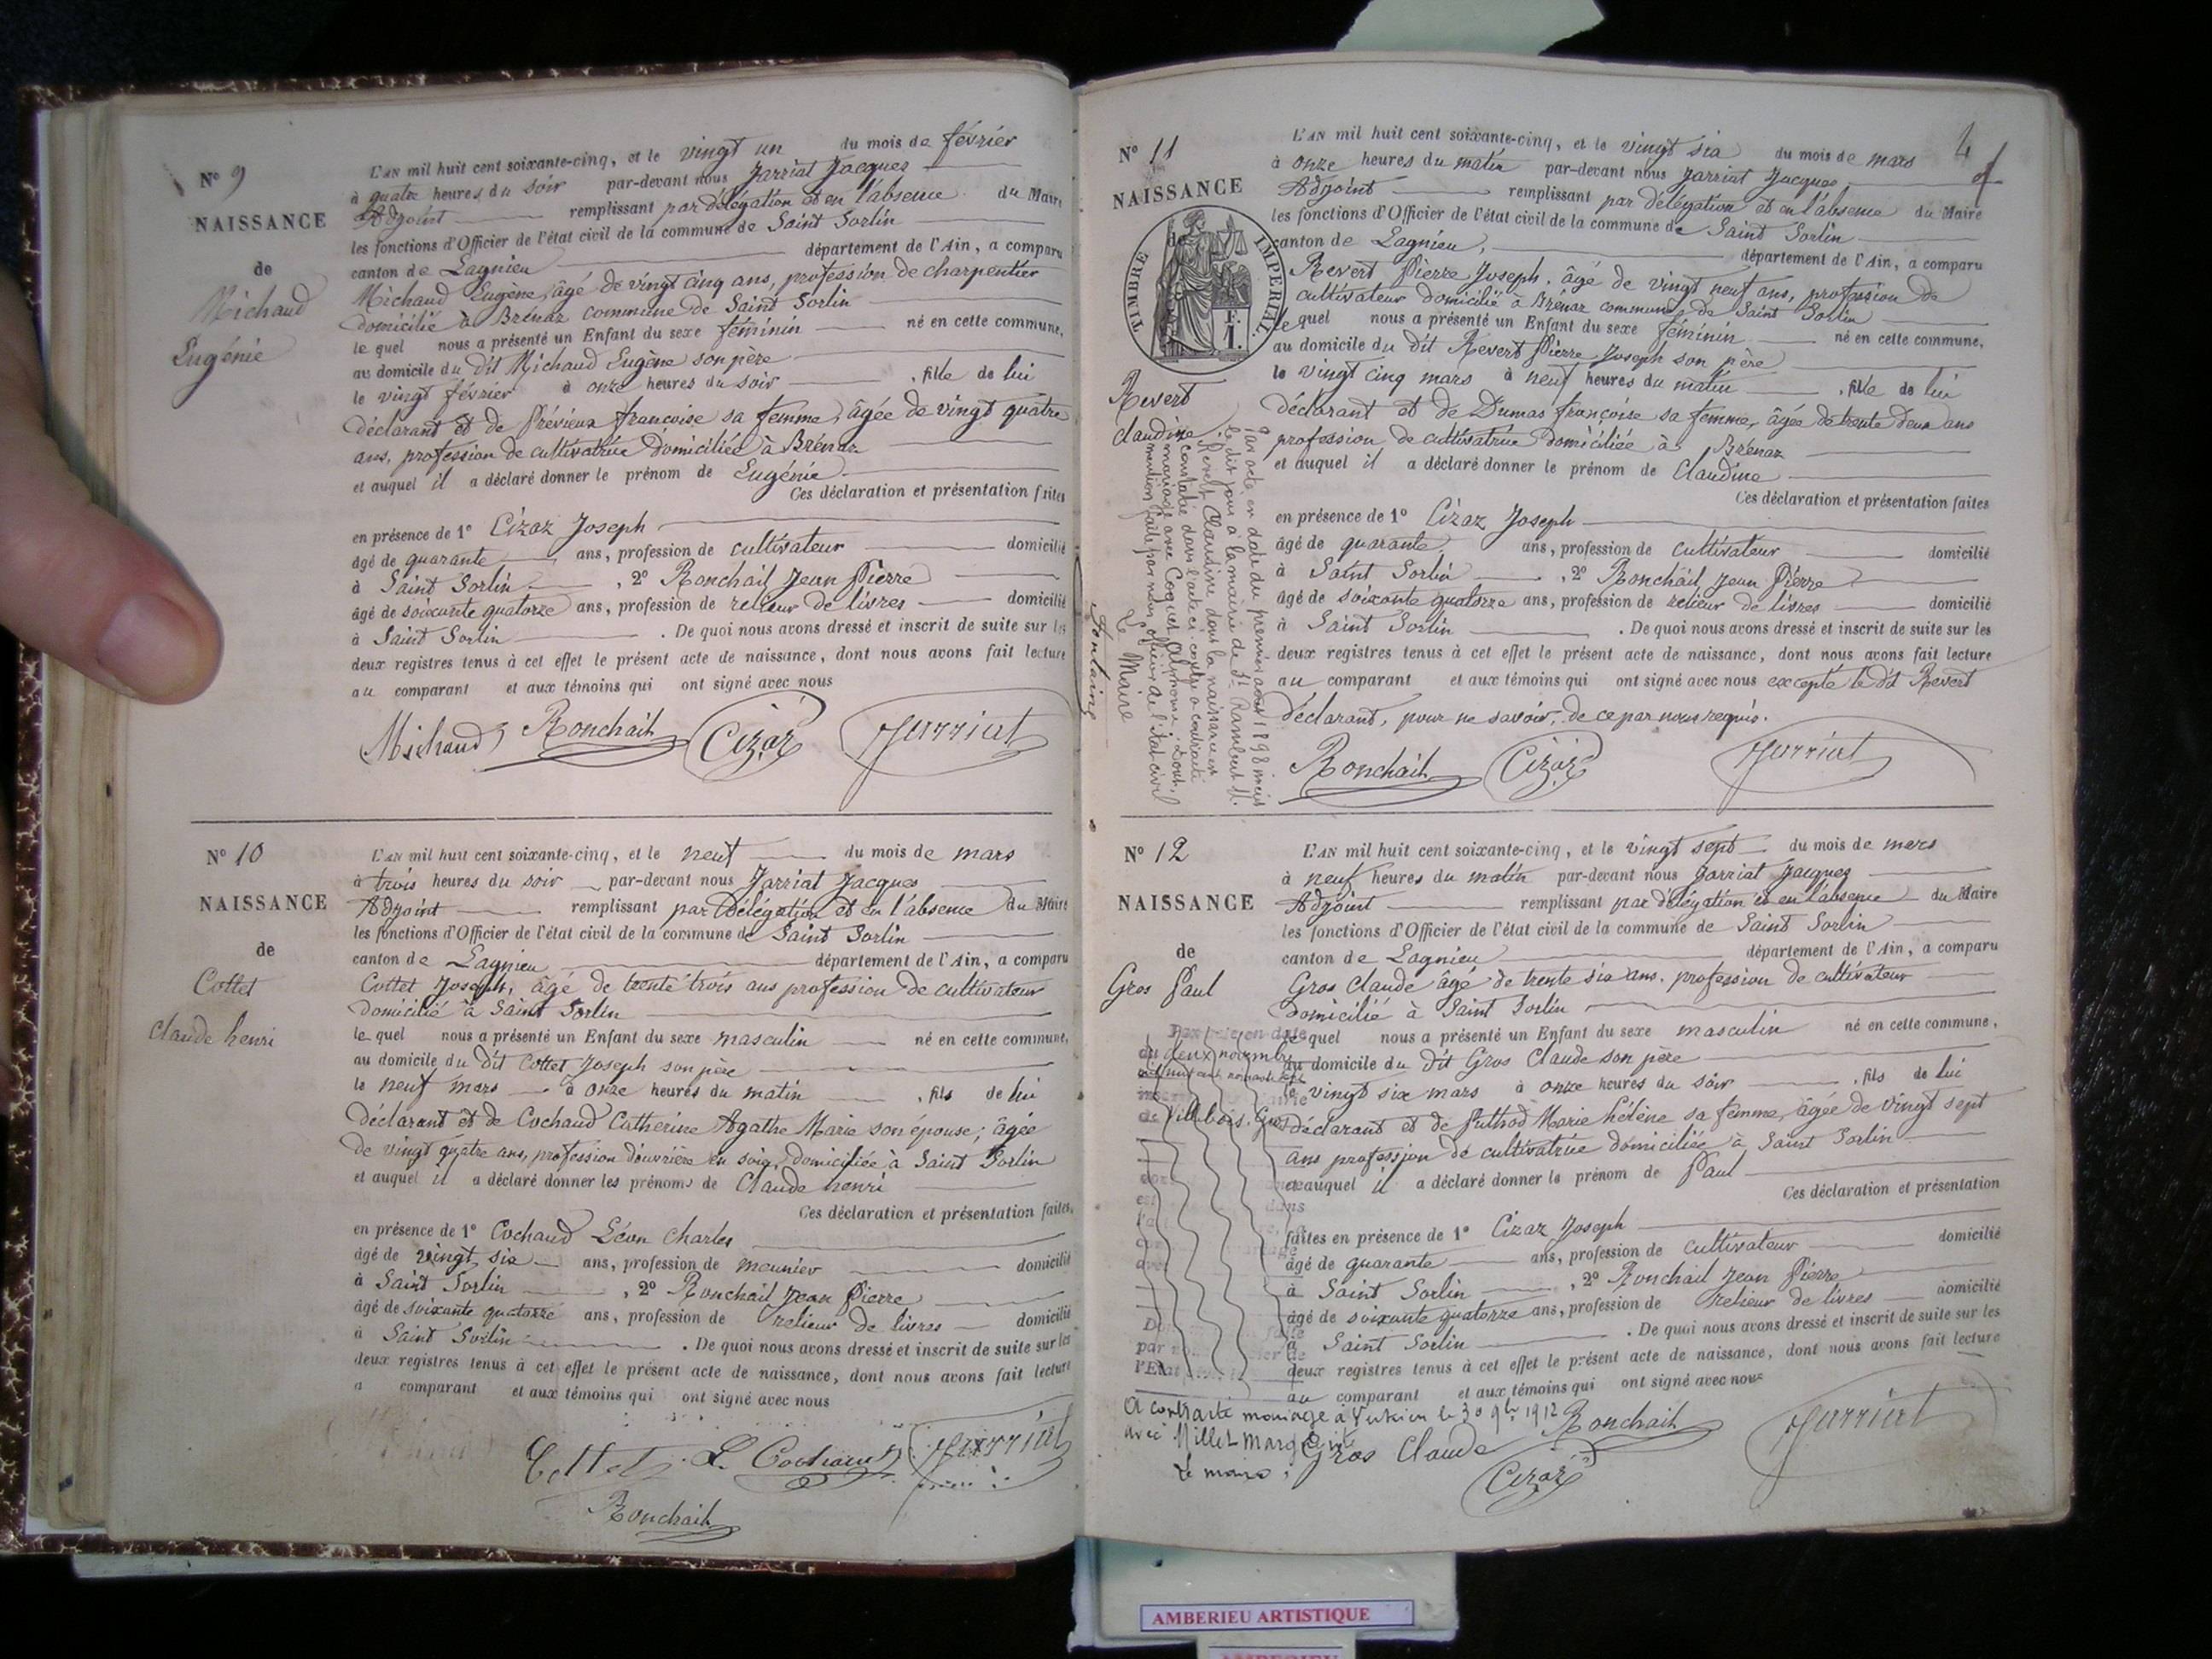 N° 9
NAISSANCE
de
Michaud
Eugénie
L'AN mil huit cent soixante-cinq, et le vingt un du mois de février
à quatre heures du soir par-devant nous Jarriat Jacques
Adjoint remplissant par délégation et en l'absence du Maire
les fonctions d'Officier de l'état civil de la commune de Saint Sorlin
canton de Lagnieu département de l'Ain, a comparu
Michaud Eugène, âgé de vingt cinq ans, profession de charpentier
domicilié à Brénaz commune de Saint Sorlin
le quel nous a présenté un Enfant du sexe féminin né en cette commune,
au domicile du dit Michaud Eugène son père
le vingt février à onze heures du soir , fille de lui
déclarant et de Prévieux françoise sa femme, âgée de vingt quatre
ans, profession de cultivatrice domiciliée à Brénaz
et auquel il a déclaré donner le prénom de Eugénie
Ces déclaration et présentation faites
en présence de 1° Cizaz Joseph
âgé de quarante ans, profession de cultivateur domicilié
à Saint Sorlin , 2° Ronchail Jean Pierre
âgé de soixante quatorze ans, profession de relieur de livres domicilié
à Saint Sorlin . De quoi nous avons dressé et inscrit de suite sur les
deux registres tenus à cet effet le présent acte de naissance, dont nous avons fait lecture
au comparant et aux témoins qui ont signé avec nous
Michaud Ronchail Cizaz Jarriat
N° 10
NAISSANCE
de
Cottet
Claude henri
L'AN mil huit cent soixante-cinq, et le neuf du mois de mars
à trois heures du soir par-devant nous Jarriat Jacques
Adjoint remplissant par délégation et en l'absence du Maire
les fonctions d'Officier de l'état civil de la commune de Saint Sorlin
canton de Lagnieu département de l'Ain, a comparu
Cottet Joseph, âgé de trente trois ans profession de cultivateur
domicilié à Saint Sorlin
le quel nous a présenté un Enfant du sexe masculin né en cette commune,
au domicile du dit Cottet Joseph son père
le neuf mars à onze heures du matin , fils de lui
déclarant et de Cochaud Catherine Agathe Marie son épouse; âgée
de vingt quatre ans, profession d'ouvrière en soie, domiciliée à Saint Sorlin
et auquel il a déclaré donner les prénoms de Claude henri
Ces déclaration et présentation faites
en présence de 1° Cochaud Léon Charles
âgé de vingt six ans, profession de meunier domicilié
à Saint Sorlin , 2° Ronchail Jean Pierre
âgé de soixante quatorze ans, profession de relieur de livres domicilié
à Saint Sorlin . De quoi nous avons dressé et inscrit de suite sur les
deux registres tenus à cet effet le présent acte de naissance, dont nous avons fait lecture
a comparant et aux témoins qui ont signé avec nous
Cottet L. Cochaud Jarriat
Ronchail
4
N° 11
NAISSANCE
de
TIMBRE IMPERIAL
F. 1.
Revert
Claudine
L'AN mil huit cent soixante-cinq, et le vingt six du mois de mars
à onze heures du matin par-devant nous Jarriat Jacques
Adjoint remplissant par délégation et en l'absence du Maire
les fonctions d'Officier de l'état civil de la commune de Saint Sorlin
canton de Lagnieu, département de l'Ain, a comparu
Revert Pierre Joseph, âgé de vingt neuf ans, profession de
cultivateur domicilié à Brénaz commune de Saint Sorlin
le quel nous a présenté un Enfant du sexe féminin né en cette commune,
au domicile du dit Revert Pierre Joseph son père
le vingt cinq mars à neuf heures du matin , fille de lui
déclarant et de Dumas françoise sa femme, âgée de trente deux ans
profession de cultivatrice domiciliée à Brénaz
et auquel il a déclaré donner le prénom de Claudine
Ces déclaration et présentation faites
en présence de 1° Cizaz Joseph
âgé de quarante ans, profession de cultivateur domicilié
à Saint Sorlin , 2° Ronchail Jean Pierre
âgé de soixante quatorze ans, profession de relieur de livres domicilié
à Saint Sorlin . De quoi nous avons dressé et inscrit de suite sur les
deux registres tenus à cet effet le présent acte de naissance, dont nous avons fait lecture
au comparant et aux témoins qui ont signé avec nous excepté le dit Revert
déclarant, pour ne savoir, de ce par nous requis.
Ronchail Cizaz Jarriat
Par acte en date du premier août 1898 inscrit
le dit jour à la mairie de St Rambert
Revert Claudine dont la naissance est
constatée dans l'acte ci-contre a contracté
mariage avec Coquet Dont
mention faite par nous, officier de l'état civil
Le Maire
Fontaine
N° 12
NAISSANCE
de
Gros Paul
L'AN mil huit cent soixante-cinq, et le vingt sept du mois de mars
à neuf heures du matin par-devant nous Jarriat Jacques
Adjoint remplissant par délégation et en l'absence du Maire
les fonctions d'Officier de l'état civil de la commune de Saint Sorlin
canton de Lagnieu département de l'Ain, a comparu
Gros Claude âgé de trente six ans, profession de cultivateur
domicilié à Saint Sorlin
le quel nous a présenté un Enfant du sexe masculin né en cette commune,
au domicile du dit Gros Claude son père
le vingt six mars à onze heures du soir , fils de lui
déclarant et de Puthod Marie hélène sa femme, âgée de vingt sept
ans profession de cultivatrice domiciliée à Saint Sorlin
et auquel il a déclaré donner le prénom de Paul
Ces déclaration et présentation
faites en présence de 1° Cizaz Joseph
âgé de quarante ans, profession de cultivateur domicilié
à Saint Sorlin , 2° Ronchail Jean Pierre
âgé de soixante quatorze ans, profession de relieur de livres domicilié
à Saint Sorlin . De quoi nous avons dressé et inscrit de suite sur les
deux registres tenus à cet effet le présent acte de naissance, dont nous avons fait lecture
au comparant et aux témoins qui ont signé avec nous
Par acte en date
du deux novembre
de Villebois, Gros
A contracté mariage à le 30 9bre 1912
avec Millet Marguerite
Le maire,
Ronchail Jarriat
Gros Claude
Cizaz
AMBERIEU ARTISTIQUE